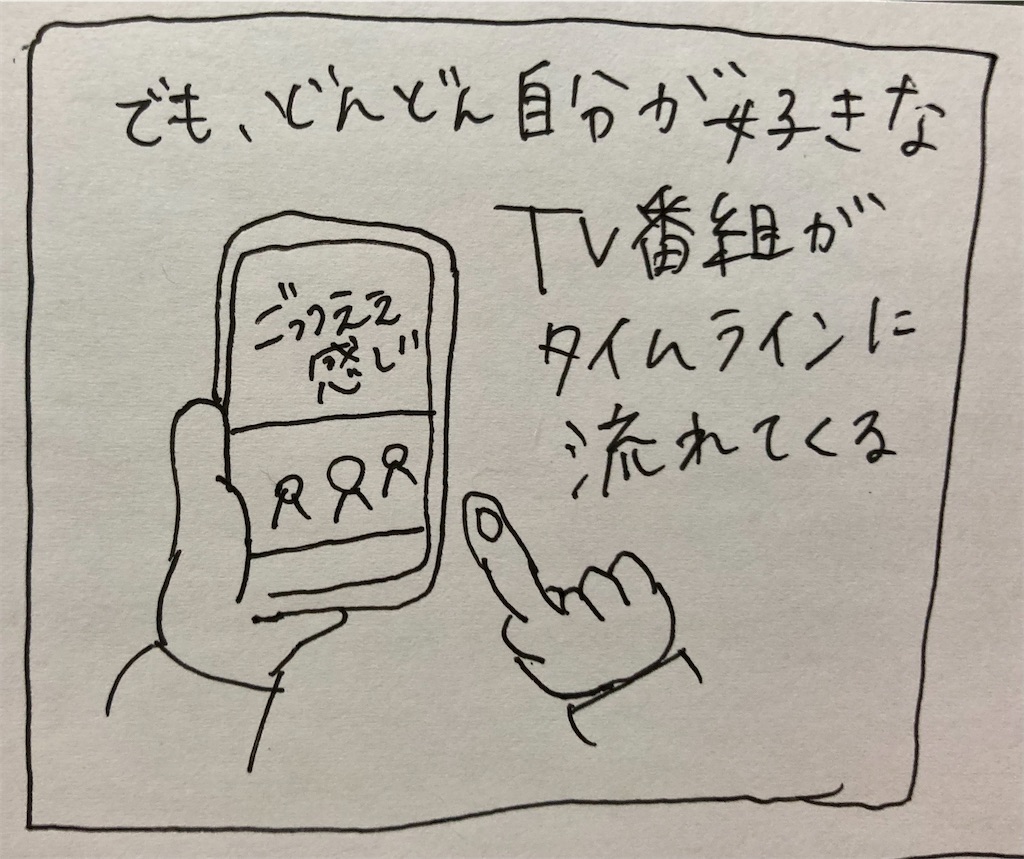 でも、どんどん自分が好きな
TV番組が
タイムラインに
流れてくる
ごっつええ
感じ